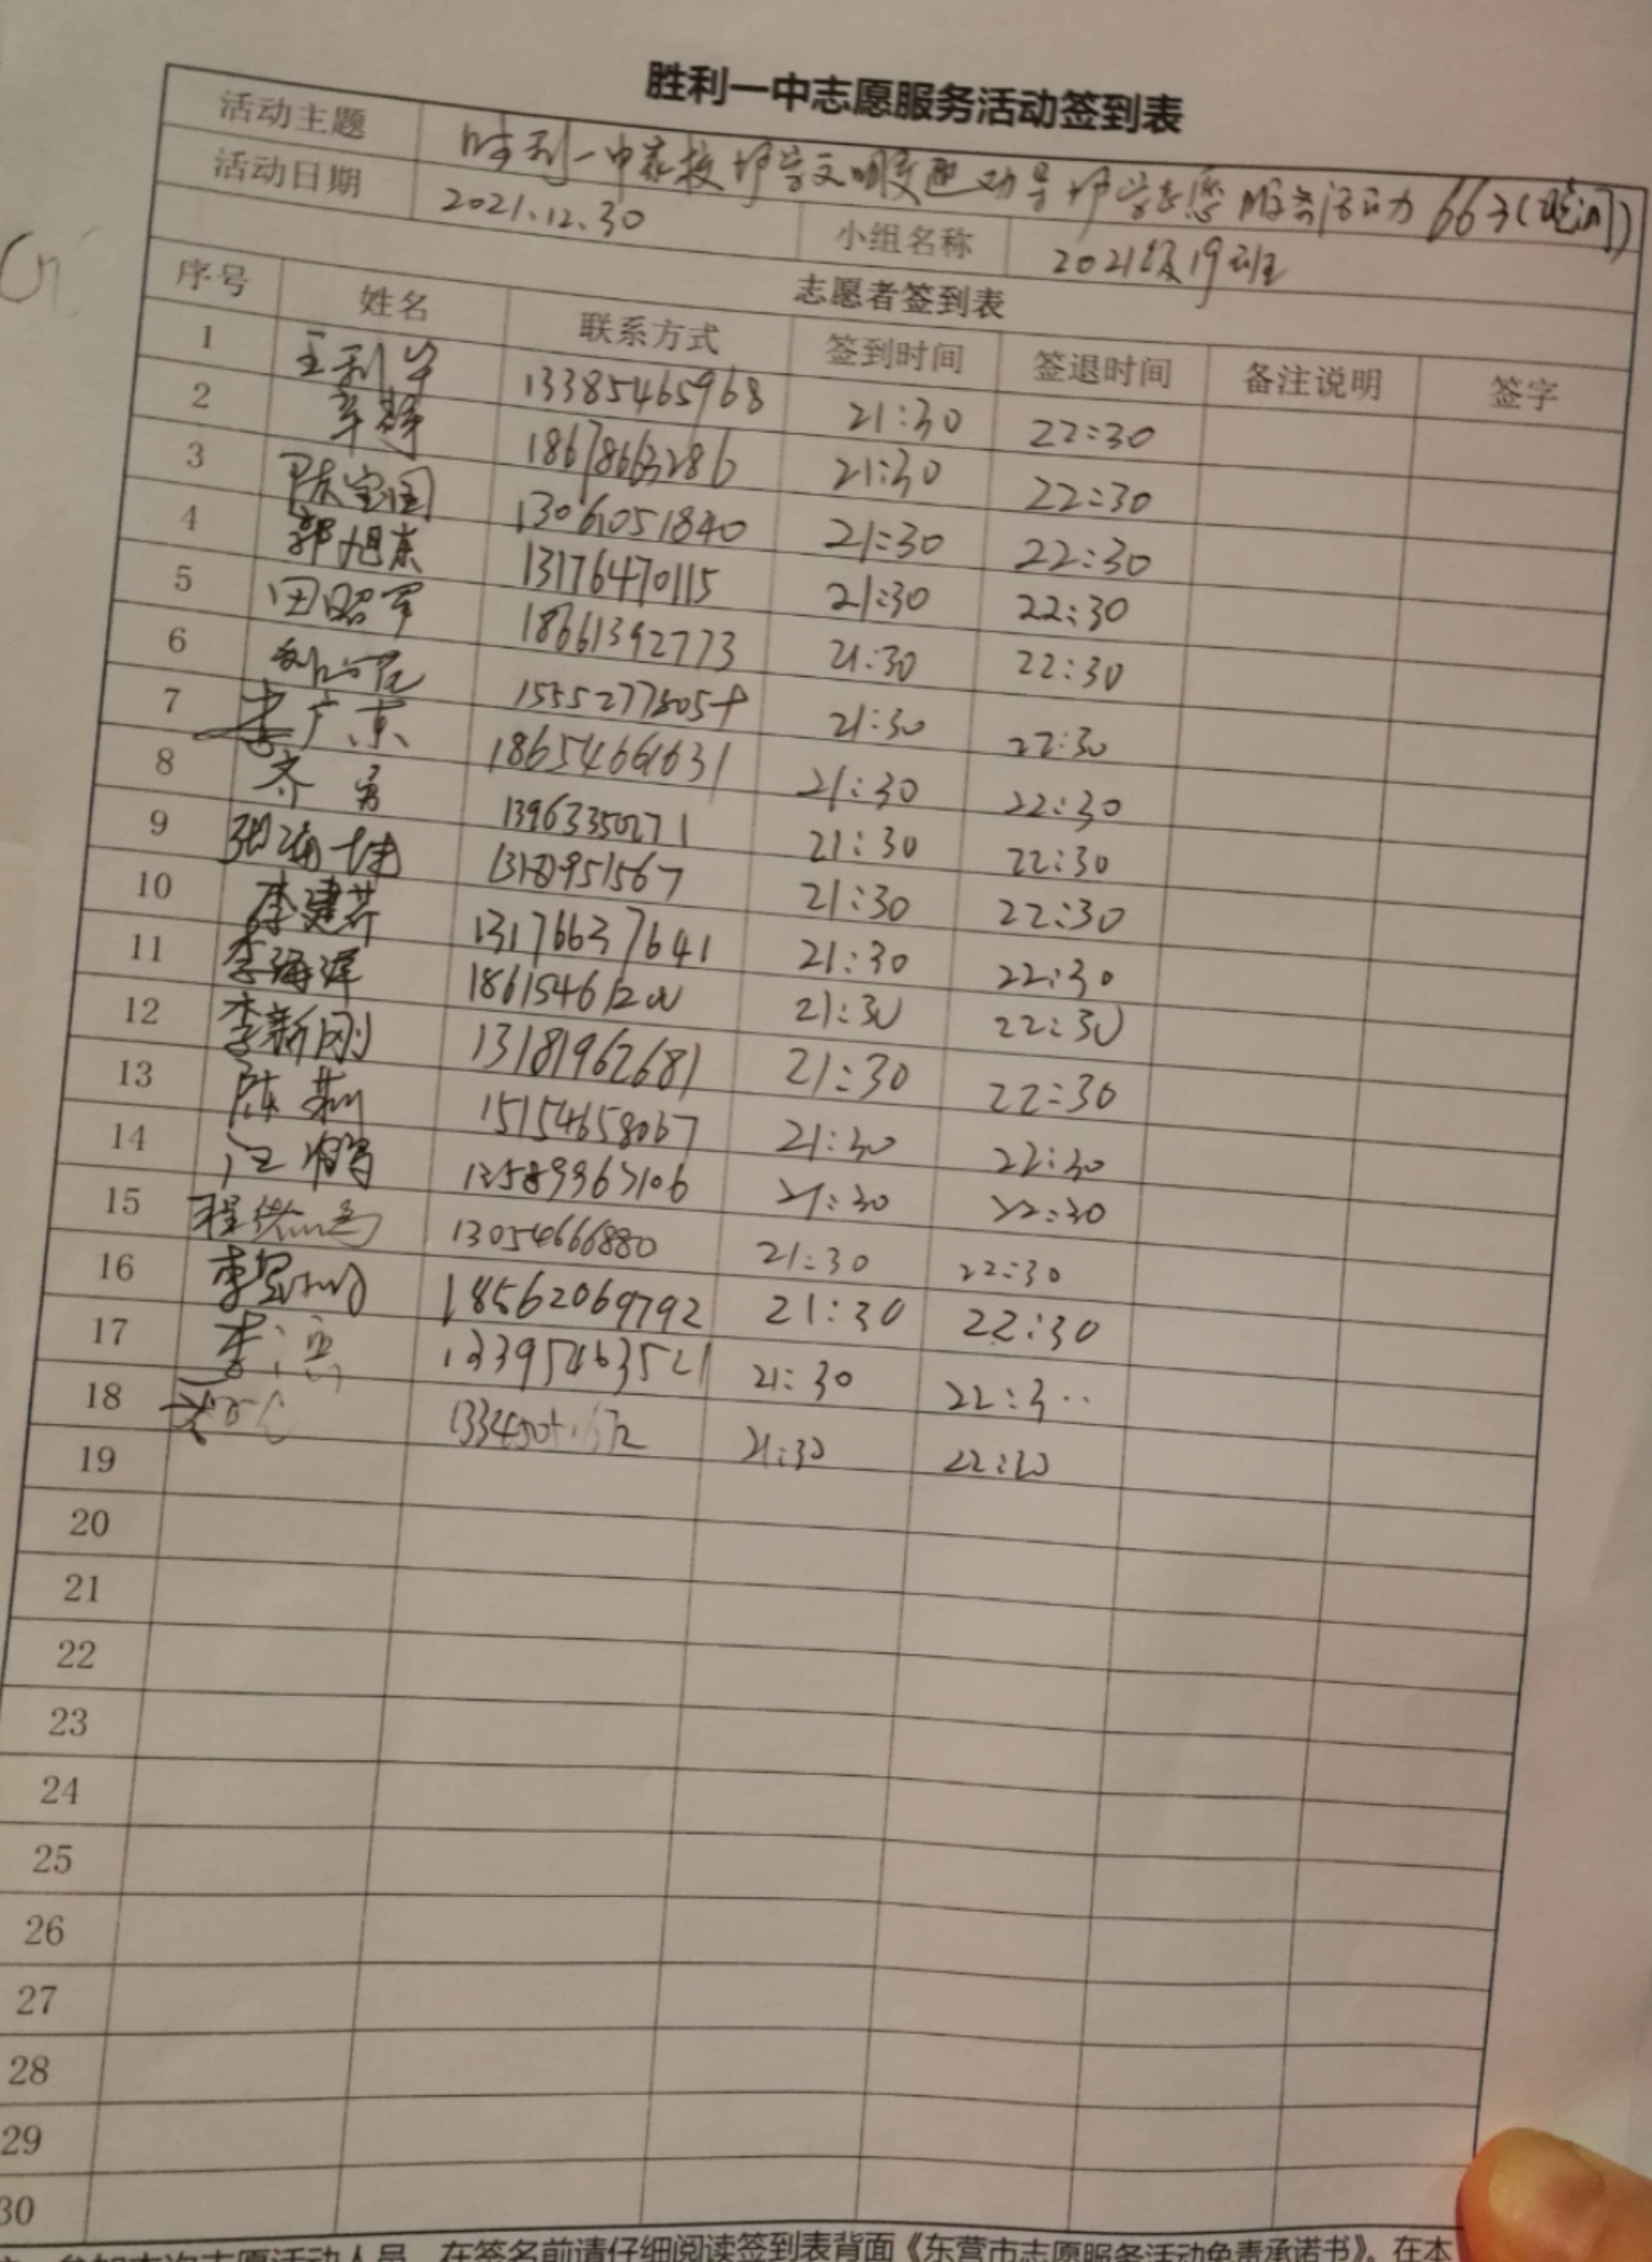 胜利一中志愿服务活动签到表
活动主题 胜利一中家校 文明 志愿服务活动 66 (晚间)
活动日期 2021.12.30 小组名称 2021级19班
志愿者签到表
序号 姓名 联系方式 签到时间 签退时间 备注说明 签字
1 王利华 13385465968 21:30 22:30
2 辛静 18678663286 21:30 22:30
3 陈宝国 13061051840 21:30 22:30
4 郭旭东 13176470115 21:30 22:30
5 田昭军 18661392773 21:30 22:30
6 21:30 22:30
7 李广东 18654661631 21:30 22:30
8 齐勇 13963350271 21:30 22:30
9 21:30 22:30
10 李建芬 13176637641 21:30 22:30
11 李海洋 21:30 22:30
12 李新刚 13181962681 21:30 22:30
13 陈莉 15154658067 21:30 22:30
14 汪鹏 21:30 22:30
15 13054666880 21:30 22:30
16 18562069792 21:30 22:30
17 21:30
18 21:30
19
20
21
22
23
24
25
26
27
28
29
30
参加本次志愿活动人员，在签名前请仔细阅读签到表背面《东营市志愿服务活动免责承诺书》，在本